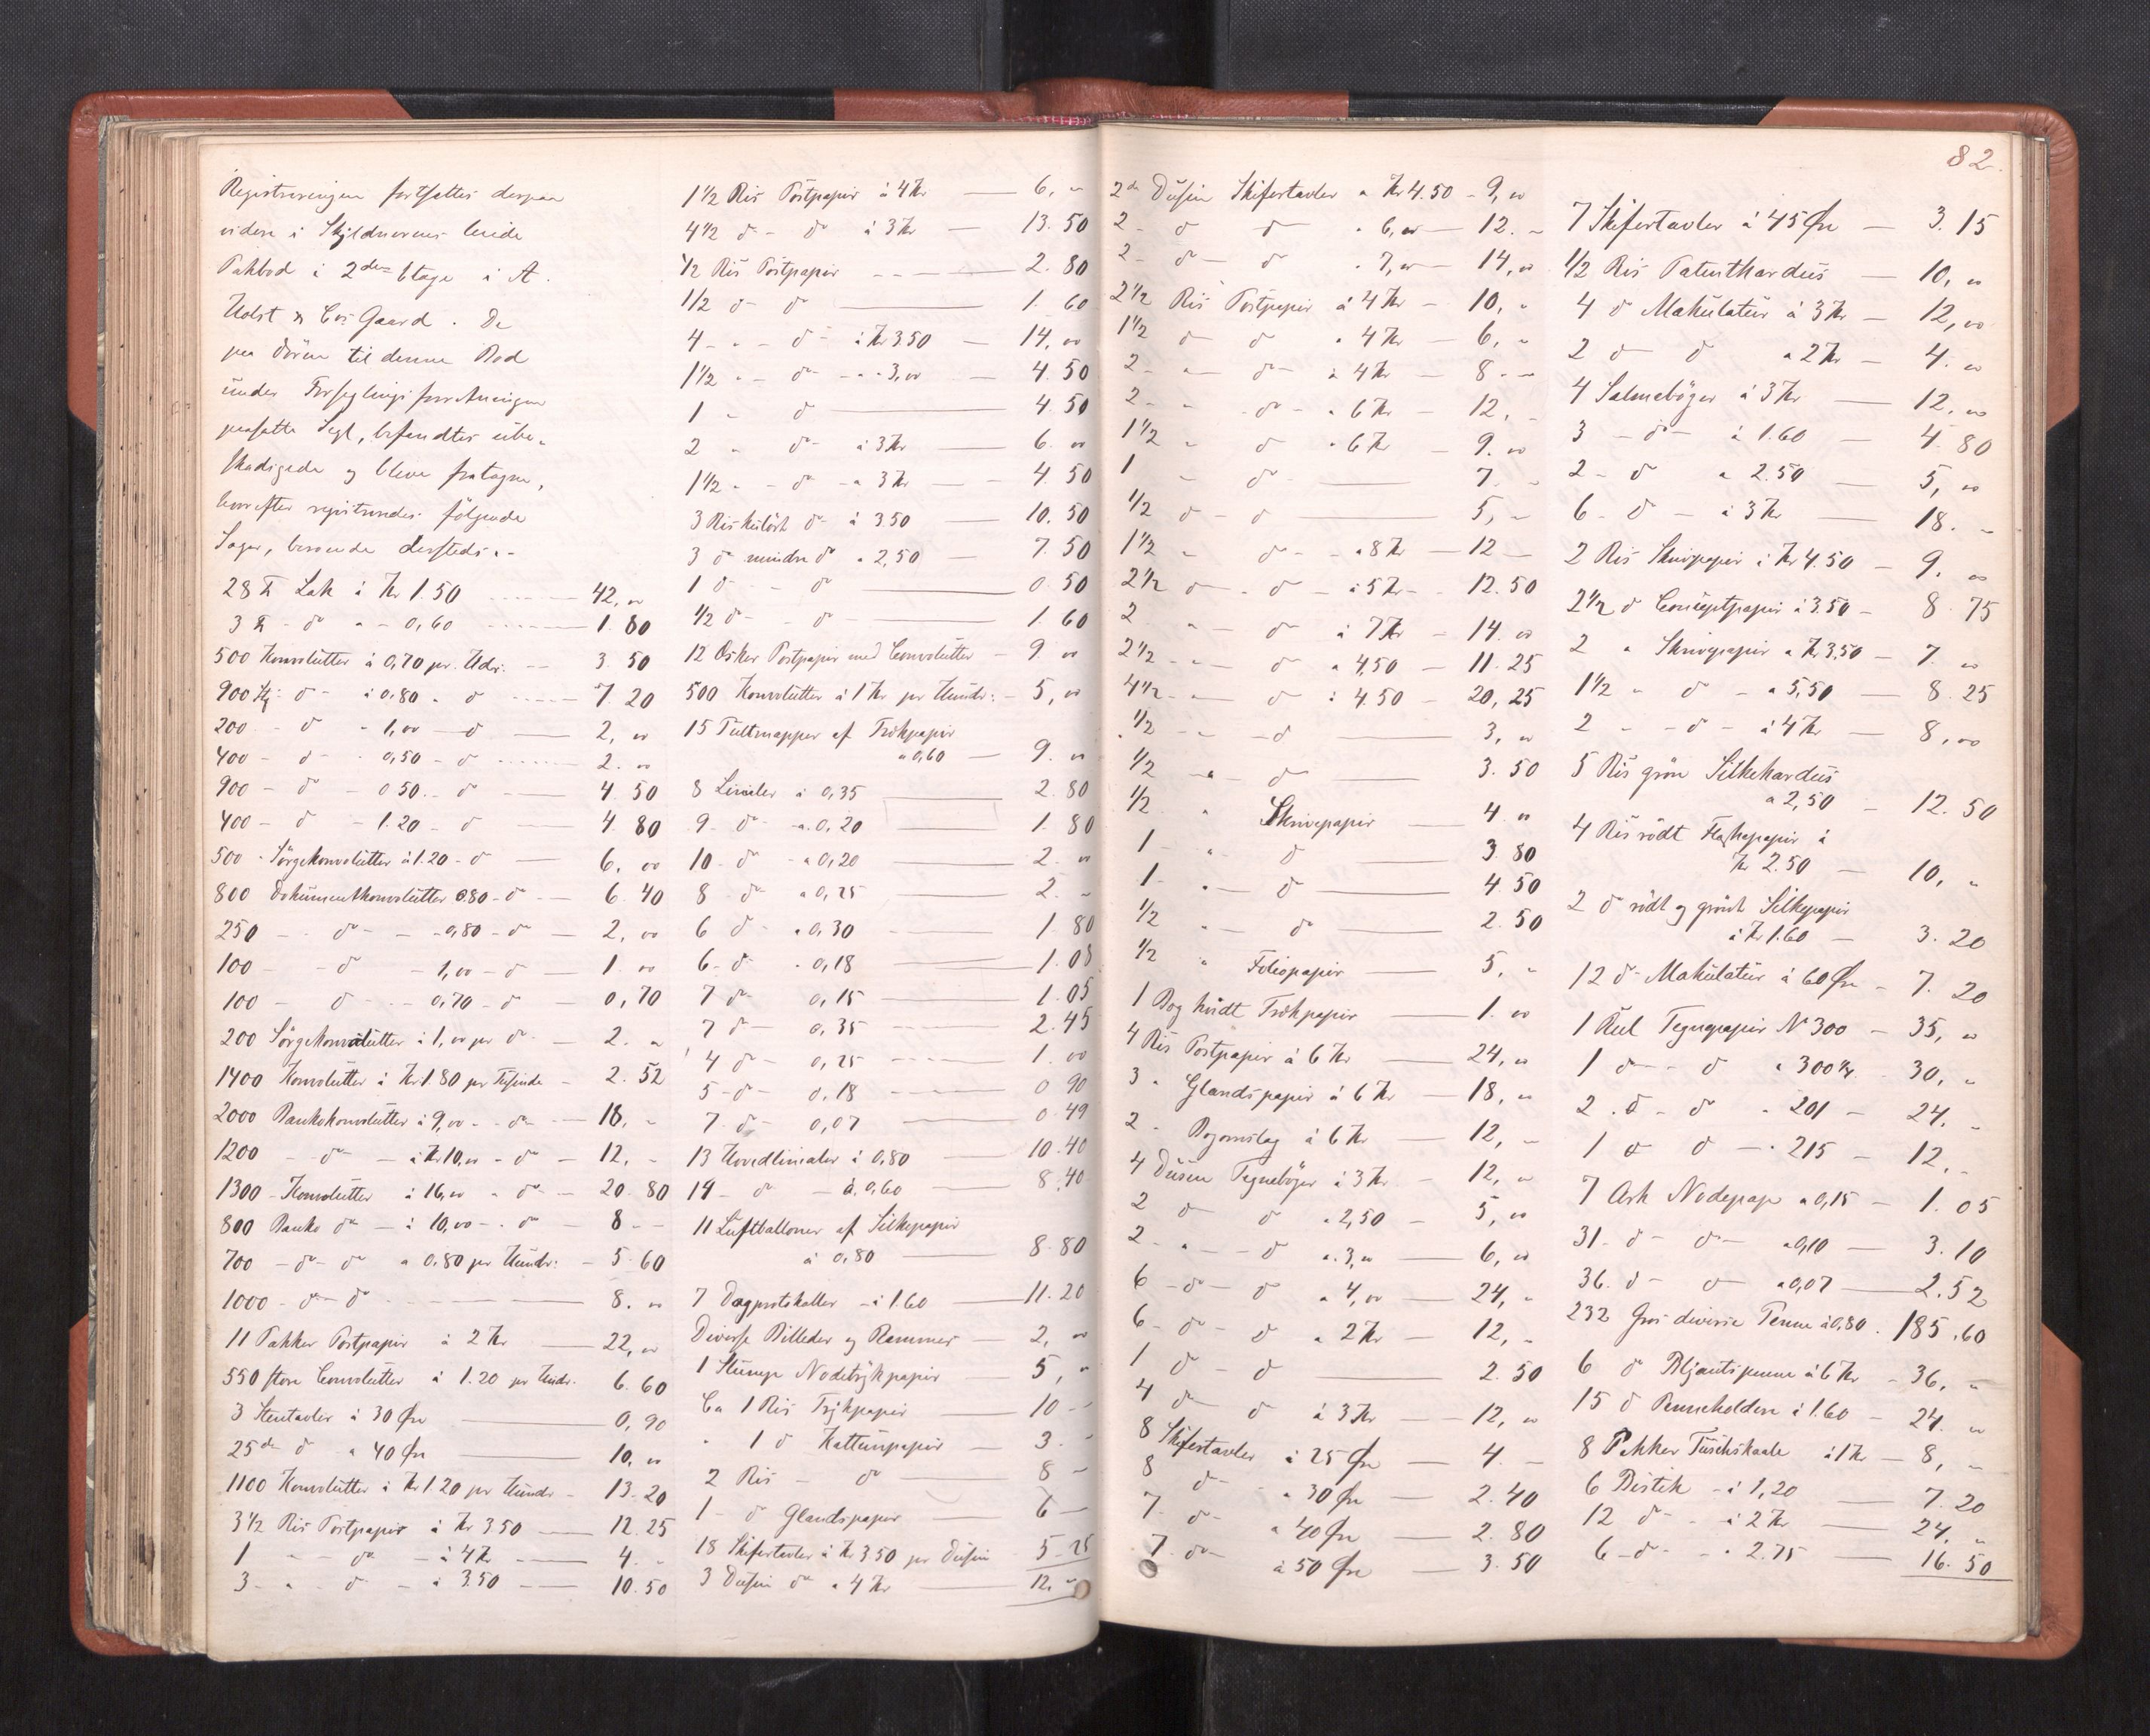 Registreringen fortsattes derpaa
videre i Skyldnerens leiede
Pakbod i 2den Etage i A.
Holst & Co's Gaard. De
paa Døren til denne Bod
under Forseglingsforretningen
paasatte Segl, befandtes ube-
skadigede og bleve fratagne,
hvorefter registreredes følgende
Sager, beroende dersteds.-
28 ℔ Lak à Kr 1.50 42,00
3 ℔ - do - 0,60 1.80
500 Konvolutter à 0,70 pr. Hdr. 3.50
900 do à 0.80 - do 7.20
200 - do - 1,00 - do 2,00
400 - do - 0,50 - do 2.00
900 - do - 0 50 - do 4.50
400 - do - 1.20 - do 4.80
500 - Sørgekonvolutter à 1.20 - do 6,00
800 Dokumentkonvolutter 0.80 - do 6.40
250 - do - 0,80 - do 2,00
100 - do - 1,00 - do 1.00
100 - do - 0,70 - do 0,70
200 Sørgekonvolutter à 1,00 pr do 2.00
1400 Konvolutter à Kr 1.80 pr Tusinde 2.52
2000 Bankokonvolutter à 9,00 - do 18,-
1200 - do - à Kr 10,00 - do 12,-
1300 - Konvolutter à 16,00 - do 20.80
800 Banko do - à 10,00 - do 8 --
700 - do - do à 0.80 pr Hundr: 5.60
1000 - do - do 8.00
11 Pakker Postpapir à 2 Kr 22,00
550 store Convolutter à 1.20 pr Hndr. 6.60
3 Stentavler à 30 Øre 0,90
25 do à 40 Øre 10,00
1100 Konvolutter à Kr 1.20 pr Hundr 13.20
3 1/2 Ris Postpapir à Kr 3.50 12.25
1 - do - à 4 Kr 4.-
3 - do - à 3.50 10.50
1 1/2 Ris Postpapir à 4 Kr 6,-
4 1/2 do - do à 3 Kr 13.50
1/2 Ris Postpapir 2.80
1/2 do do 1.60
4 - - do - à Kr 3.50 14,00
1 1/2 - - do - - 3,00 4.50
1 - do 4.50
2 - do - à 3 Kr 6.00
1 1/2 - - do - à 3 Kr 4.50
3 Ris kulört do - à 3.50 10.50
3 do mindre do à 2,50 7.50
1 do - do 0.50
1/2 do - do 1.60
12 Æsker Postpapir med Convolutter 9 00
500 Konvolutter à 1 Kr pr Hundr: 5,00
15 Pultmapper af Trækpapir
à 0,60 9.00
8 Linialer à 0,35 2.80
9 - do - à 0,20 1.80
10 - do - à 0,20 2.00
8 - do à 0,25 2.-
6 do - à 0.30 1.80
6 - do - 0,18 1.08
7 do 0,15 1.05
7 do - 0,35 2.45
4 do - 0,25 1.00
5 - do - 0.18 0 90
7 - do - 0,07 0.49
13 Hovedlinialer à 0,80 10.40
14 - do - à 0,60 8.40
11 Luftballoner af Silkepapir
à 0,80 8.80
7 Dagpostskatter - à 1.60 11.20
Diverse Billeder og Rammer 2,00
1 Stump Nodetrykpapir 5,-
Ca 1 Ris Trykpapir 10 -
- 1 do Kattunpapir 3.-
2 Ris - do 8 -
1 - do Glandspapir 6 -
18 Skifertavler à Kr 3.50 pr Dusin 5-25
3 Dusin do à 4 Kr 12.-
82.
2 do Dusin Skifertavler à Kr 4.50 - 9,00
2 - do do - 6,00 12.-
2 - do - do - 7,00 14,00
2 1/2 Ris Postpapir à 4 Kr 10,-
1 1/2 do do - 4 Kr 6,-
2 - - do - à 4 Kr 8 --
2 - - do - - 6 Kr 12,-
1 1/2 - do - 6 Kr 9.00
1 - do 7 -
1/2 do - do 5,-
1 1/2 - do - - à 8 Kr 12 -
2 1/2 do - do - à 5 Kr 12.50
2 - do à 7 Kr 14.00
2 1/2 - - do à 4,50 11.25
4 1/2 - - do à 4.50 20,25
1/2 - - do 3,00
1/2 - - do 3.50
1/2 - Skrivepapir 4 00
1 - - do 3.80
1 - - do 4.50
1/2 - do 2.50
1/2 - Foliopapir 5,-
1 Bog hvidt Trækpapir 1.00
4 Ris Postpapir à 6 Kr 24,00
3 - Glandspapir à 6 Kr 18,00
2 - Bogomslag à 6 Kr 12,-
4 Dusin Tegnebøger à 3 Kr 12,00
2 do do à 2,50 5,00
2 - - do à 3,00 6,00
6 - do - do à 4,00 24,-
6 - do - do à 2 Kr 12,-
1 do - do 2.50
4 do do à 3 Kr 12,00
8 Skifertavler à 25 Øre 4.-
8 do - à 30 Øre 2.40
7 - do - à 40 Øre 2.80
7 - do - à 50 Øre 3.50
7 Skifertavler à 45 Øre 3.15
1/2 Ris Patentkardus 10,00
4 do Makulatur à 3 Kr 12,00
2 do do à 2 Kr 4.00
4 Salmebøger à 3 Kr 12,00
3 - do - à 1.60 4.80
2 - do à 2.50 5,00
6 - do - à 3 Kr 18.-
2 Ris Skrivpapir à Kr 4.50 9.00
2 1/2 do Conceptpapir à 3.50 8.75
2 - Skrivpapir à Kr 3,50 7.00
1 1/2 - do - à 5,50 8.25
2 - - do - à 4 Kr 8,00
5 Ris grøn Silkekardus
à 2,50 12.50
4 Ris rødt Flaskepapir à
Kr 2.50 10,-
2 do rødt og grønt Silkepapir
à Kr 1.60 3.20
12 do - Makulatur à 60 Øre 7.20
1 Rul Tegnepapir N 300 35,00
1 do - - do - 300 30,-
2 - do - do - 201 24,-
1 do do - 215 12,-
7 Ark Nodepap à 0,15 1.05
31 - do - do - à 0,10 3.10
36 - do - do à 0,07 2.52
232 Gros diverse Penne à 0,80 185.60
6 do penne à 6 Kr 36,-
15 do Penneholdere à 1.60 24.00
8 Pakker Tuschskaale à 1 Kr 8,-
6 Bestik - à 1,20 7.20
12 do - - à 2 Kr 24,-
6 - do - - à 2.75 16.50